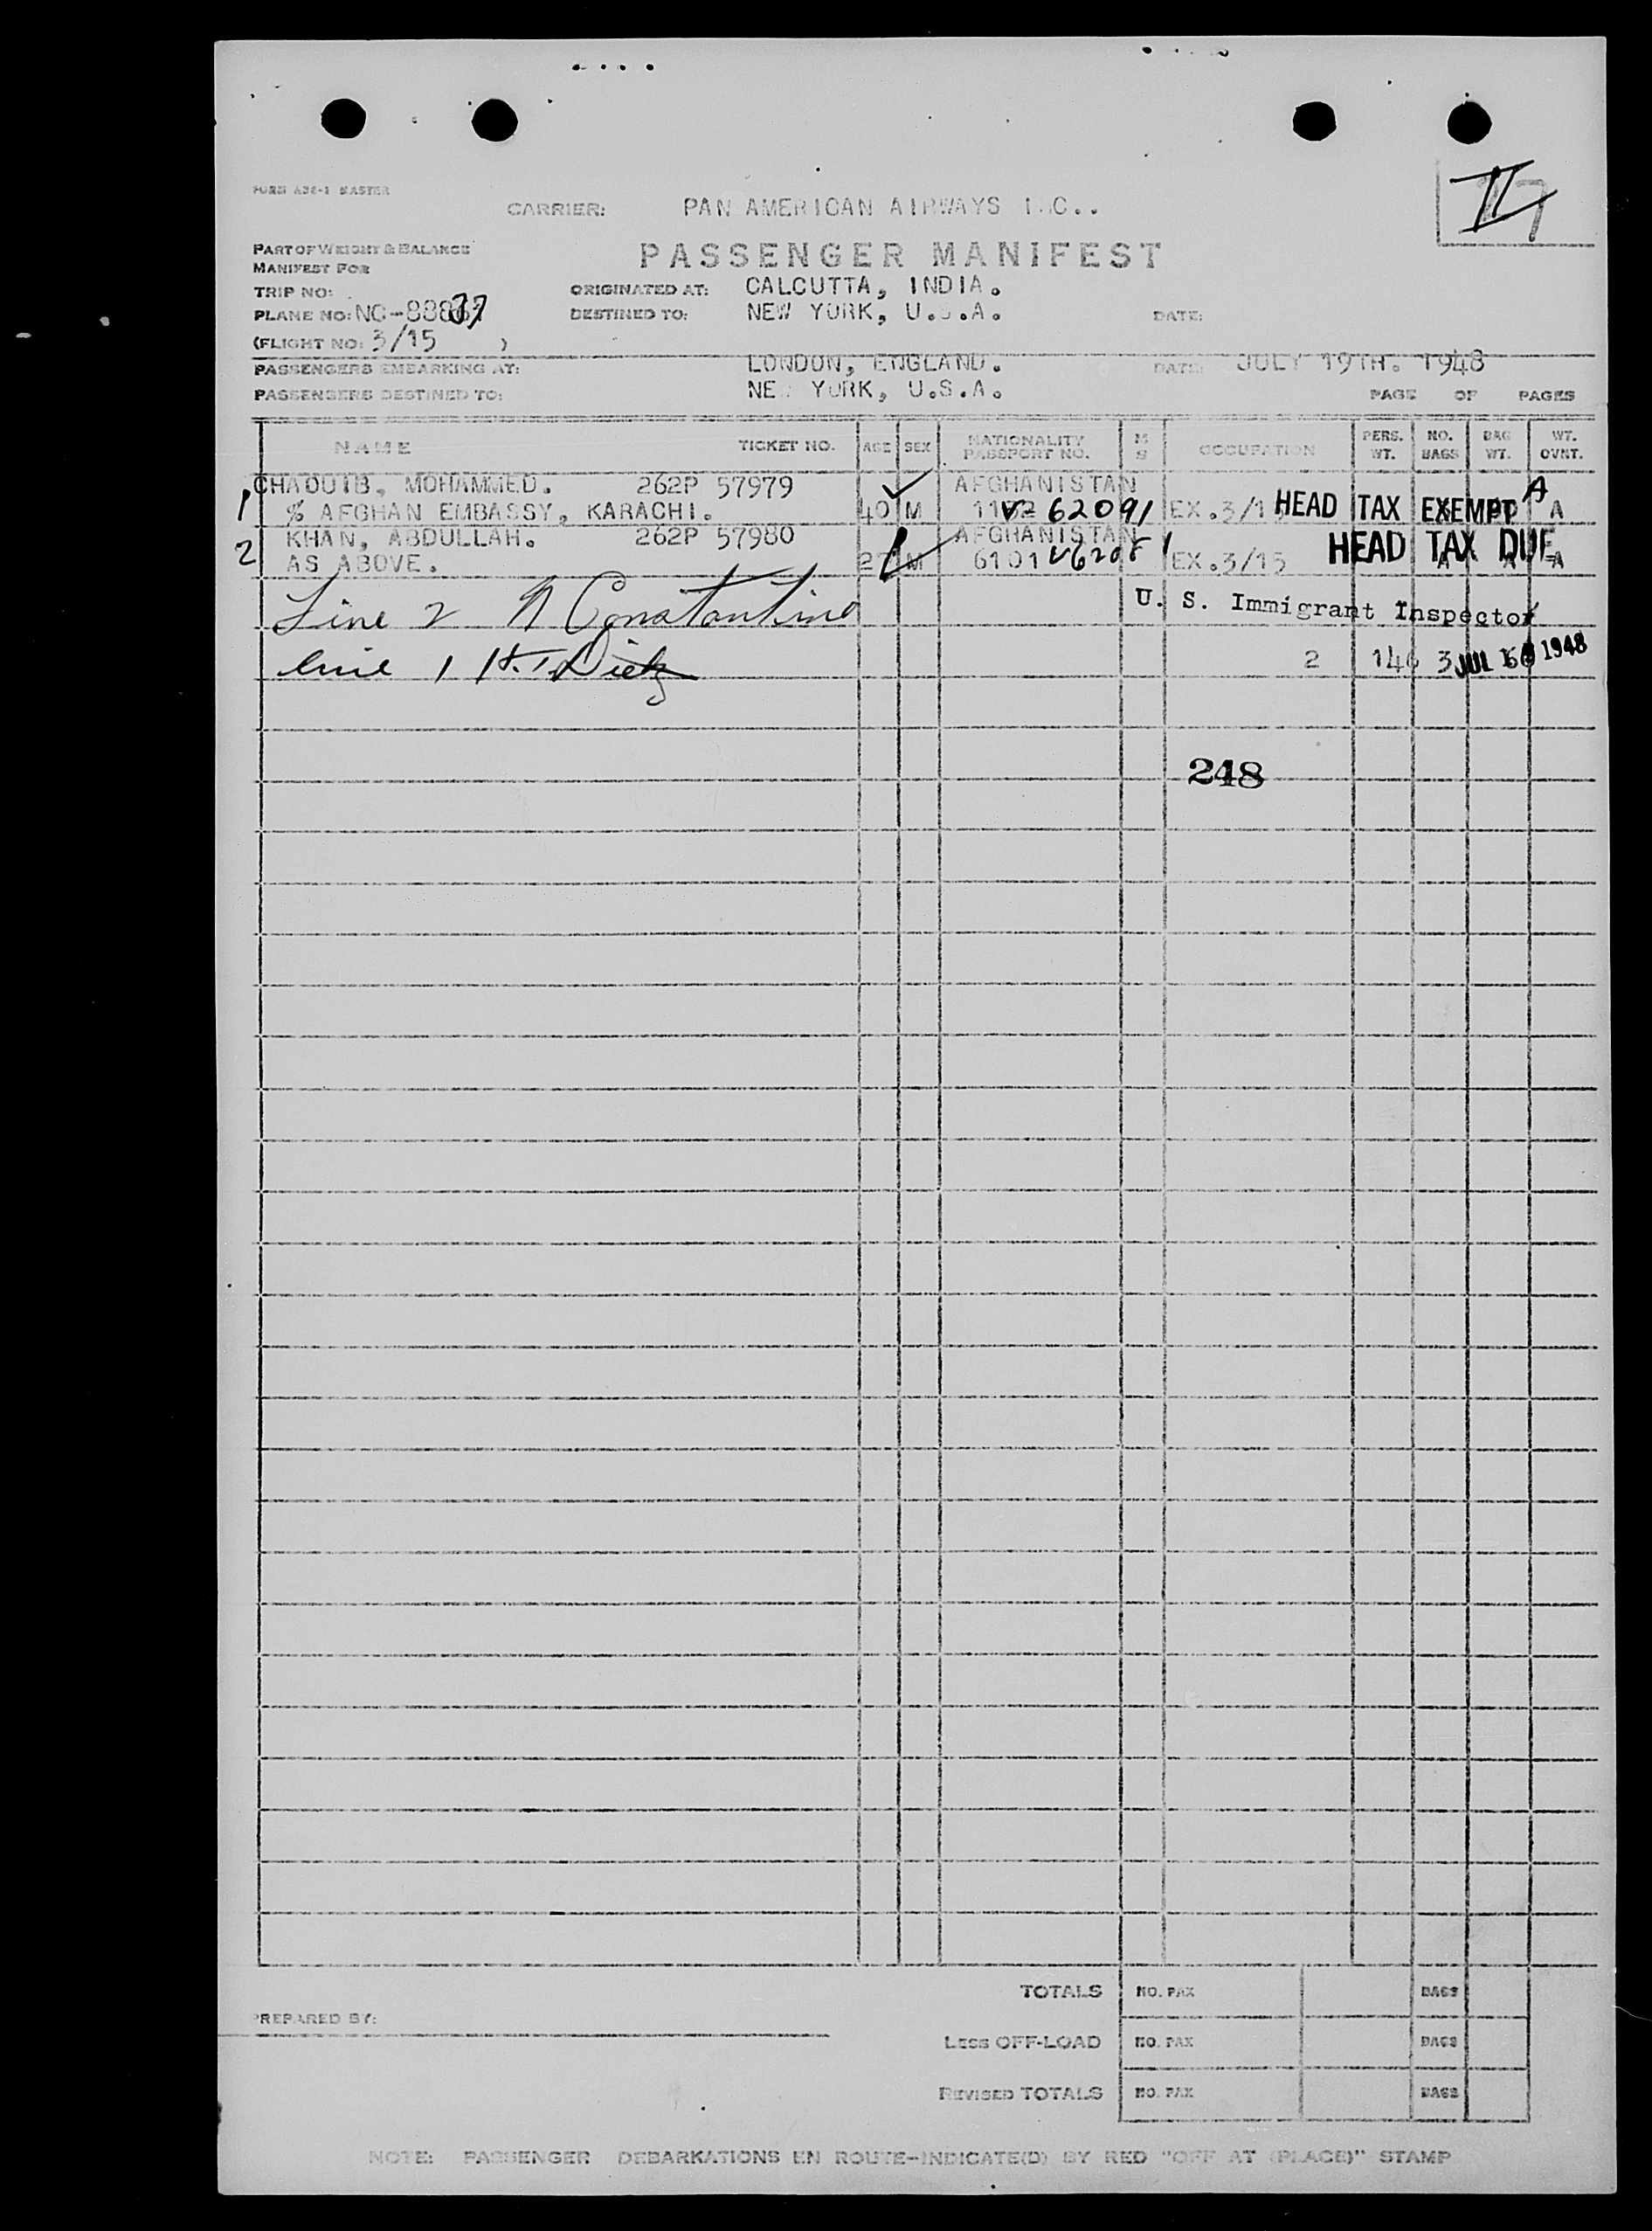 FORM A34-1 MASTER
CARRIER: PAN AMERICAN AIRWAYS INC..
PART OF WEIGHT & BALANCE
MANIFEST FOR
PASSENGER MANIFEST
TRIP NO:
ORIGINATED AT: CALCUTTA, INDIA.
PLANE NO: NC-888
DESTINED TO: NEW YORK, U.S.A. DATE:
(FLIGHT NO: 3/15 )
PASSENGERS EMBARKING AT: LONDON, ENGLAND. DATE: JULY 19TH. 1948
PASSENGERS DESTINED TO: NEW YORK, U.S.A. PAGE OF PAGES
NAME TICKET NO. AGE SEX NATIONALITY PASSPORT NO. M S OCCUPATION PERS. WT. NO. BAGS BAG WT. WT. OVNT.
1 CHAOUIB, MOHAMMED. 262P 57979 AFGHANISTAN
% AFGHAN EMBASSY, KARACHI. 40 M V 62091 EX.3/15 HEAD TAX EXEMPT A A
2 KHAN, ABDULLAH. 262P 57980 AFGHANISTAN HEAD TAX DUE
AS ABOVE. 27 M 6101 EX.3/15 A A A
Line 2 N Constantino U. S. Immigrant Inspector
line 1 H. Dietz 2 146 3 JUL 1948
248
TOTALS NO. PAX BAGS
PREPARED BY:
LESS OFF-LOAD NO. PAX BAGS
REVISED TOTALS NO. PAX BAGS
NOTE: PASSENGER DEBARKATIONS EN ROUTE-INDICATE(D) BY RED "OFF AT (PLACE)" STAMP